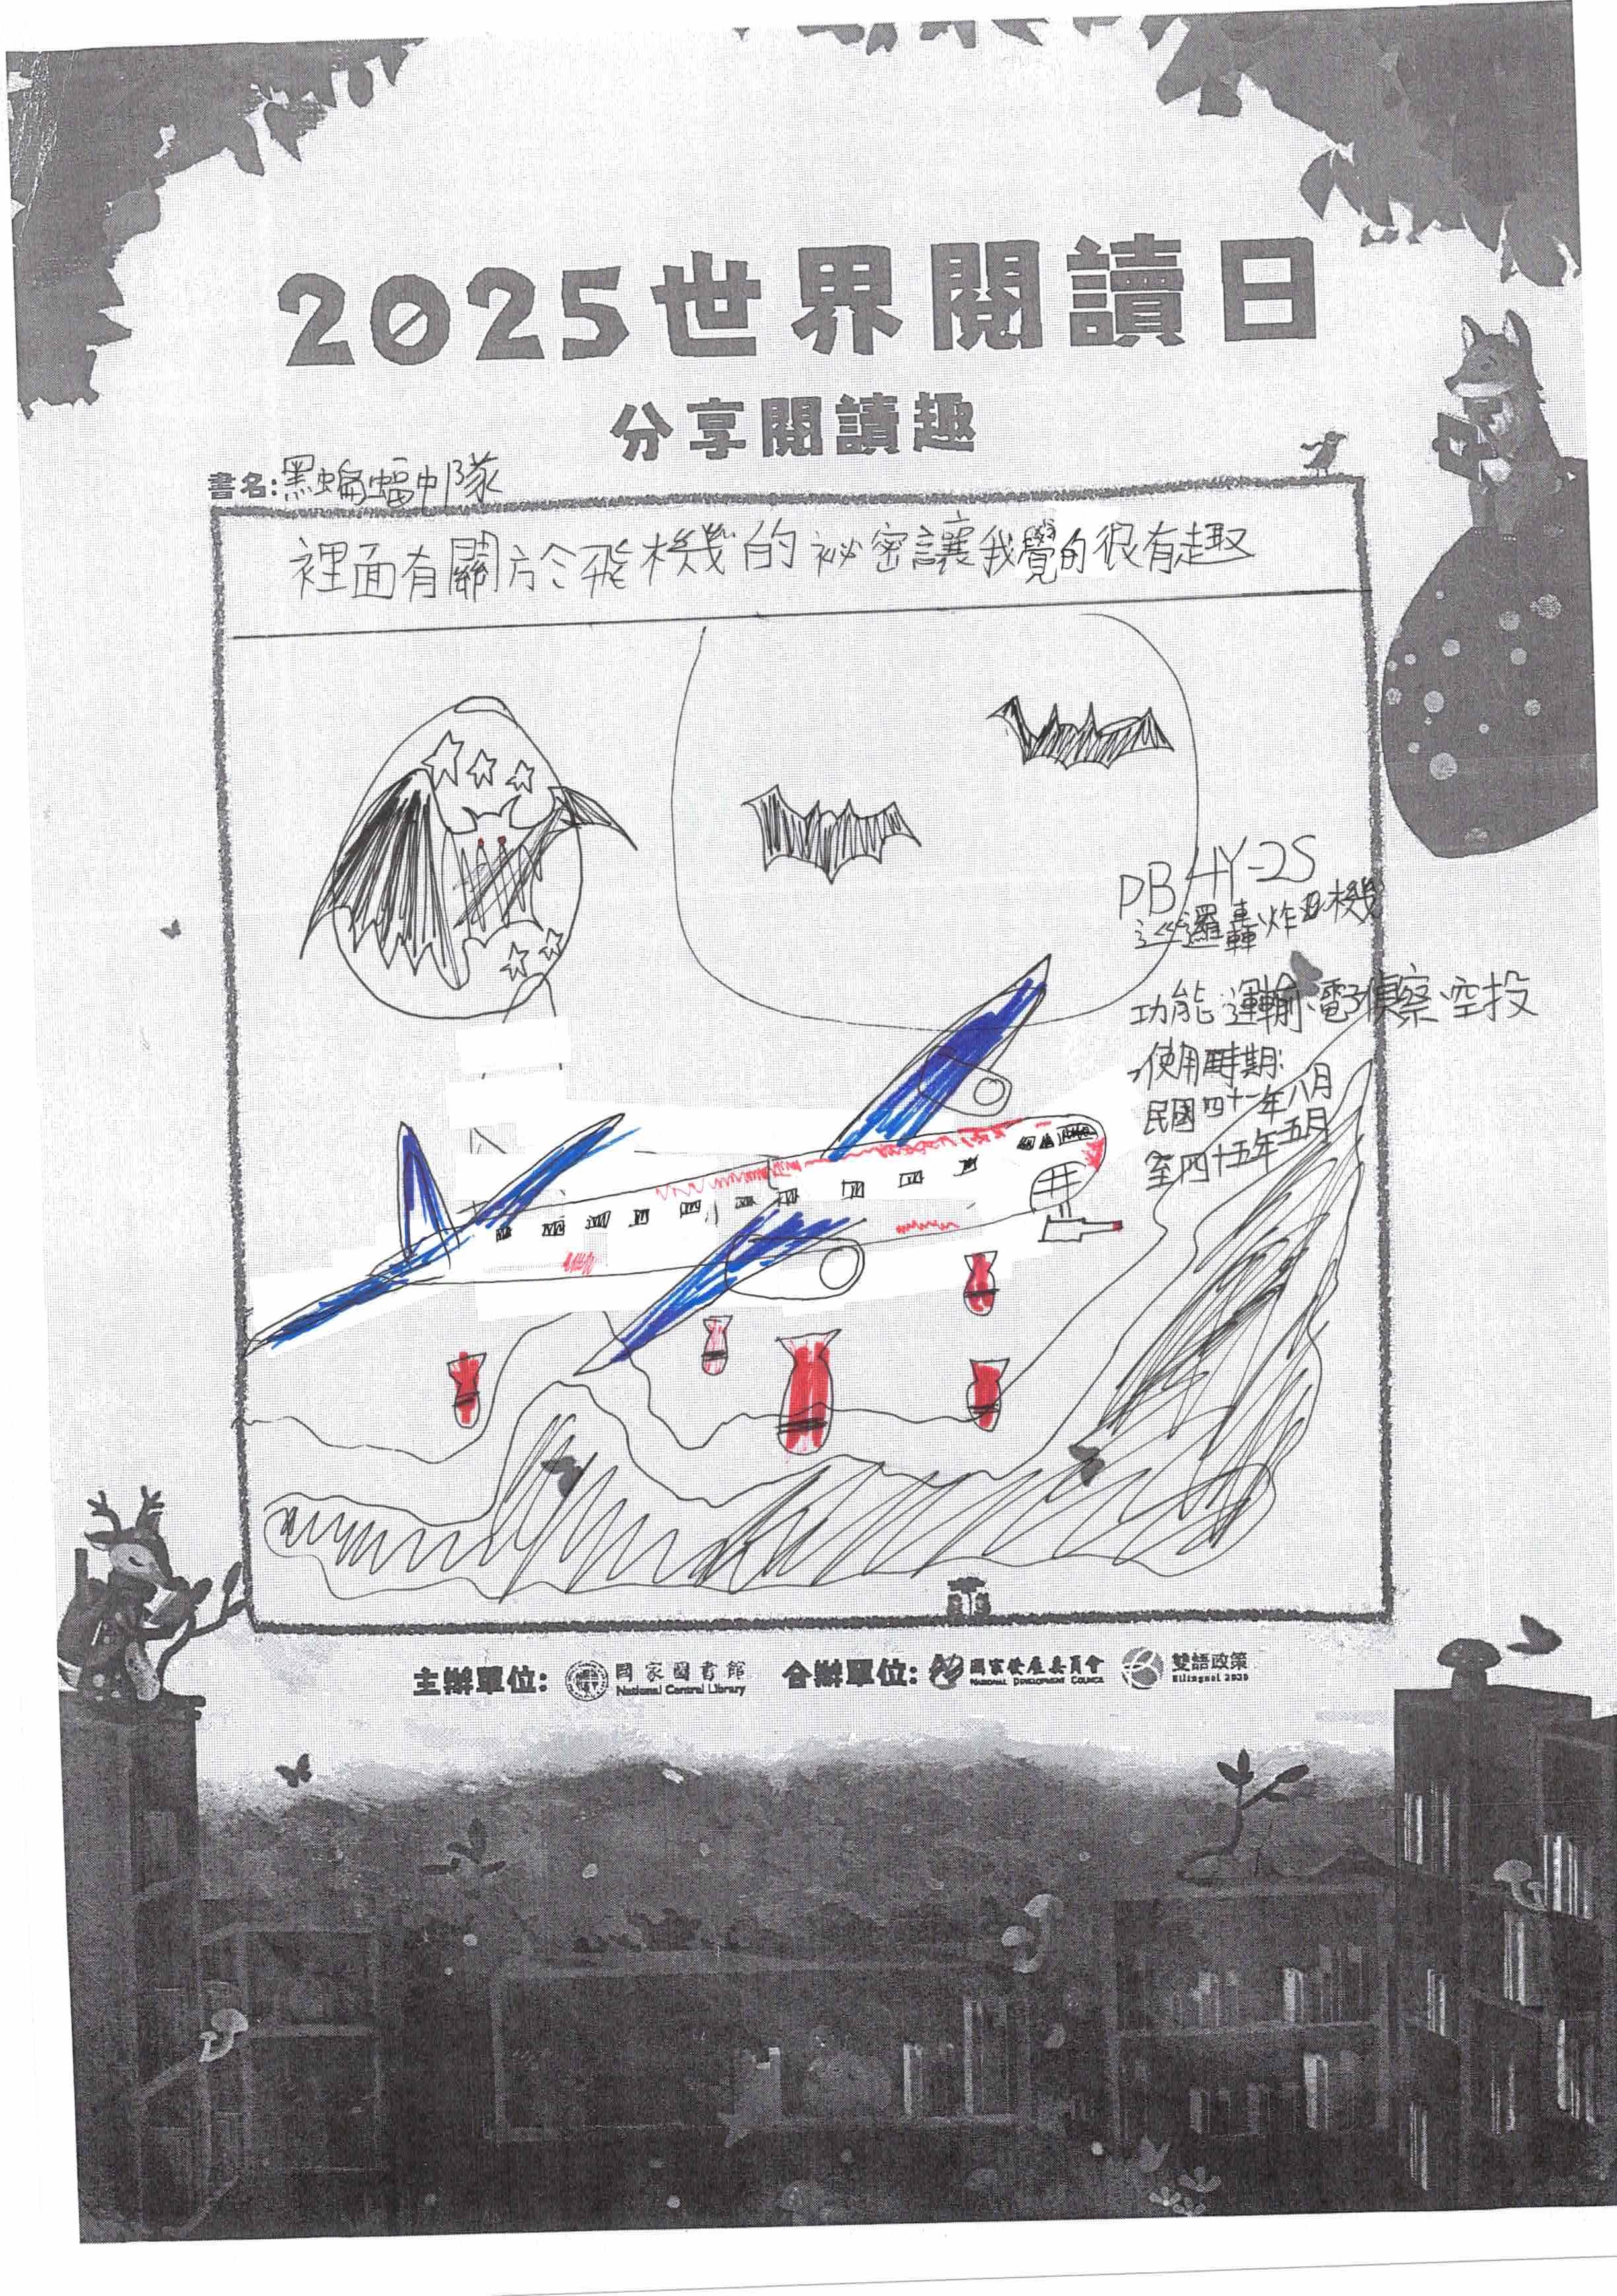 2025世界閱讀日
分享閱讀趣
書名:黑蝙蝠中隊
裡面有關於飛機的祕密讓我覺的很有趣
PB4Y-2S
巡邏轟炸機
功能 運輸、電子偵察、空投
使用時期:
民國四十一年八月
至四十五年五月
主辦單位: 國家圖書館 合辦單位: 國家發展委員會 雙語政策
National Central Library NATIONAL DEVELOPMENT COUNCIL Bilingual 2030